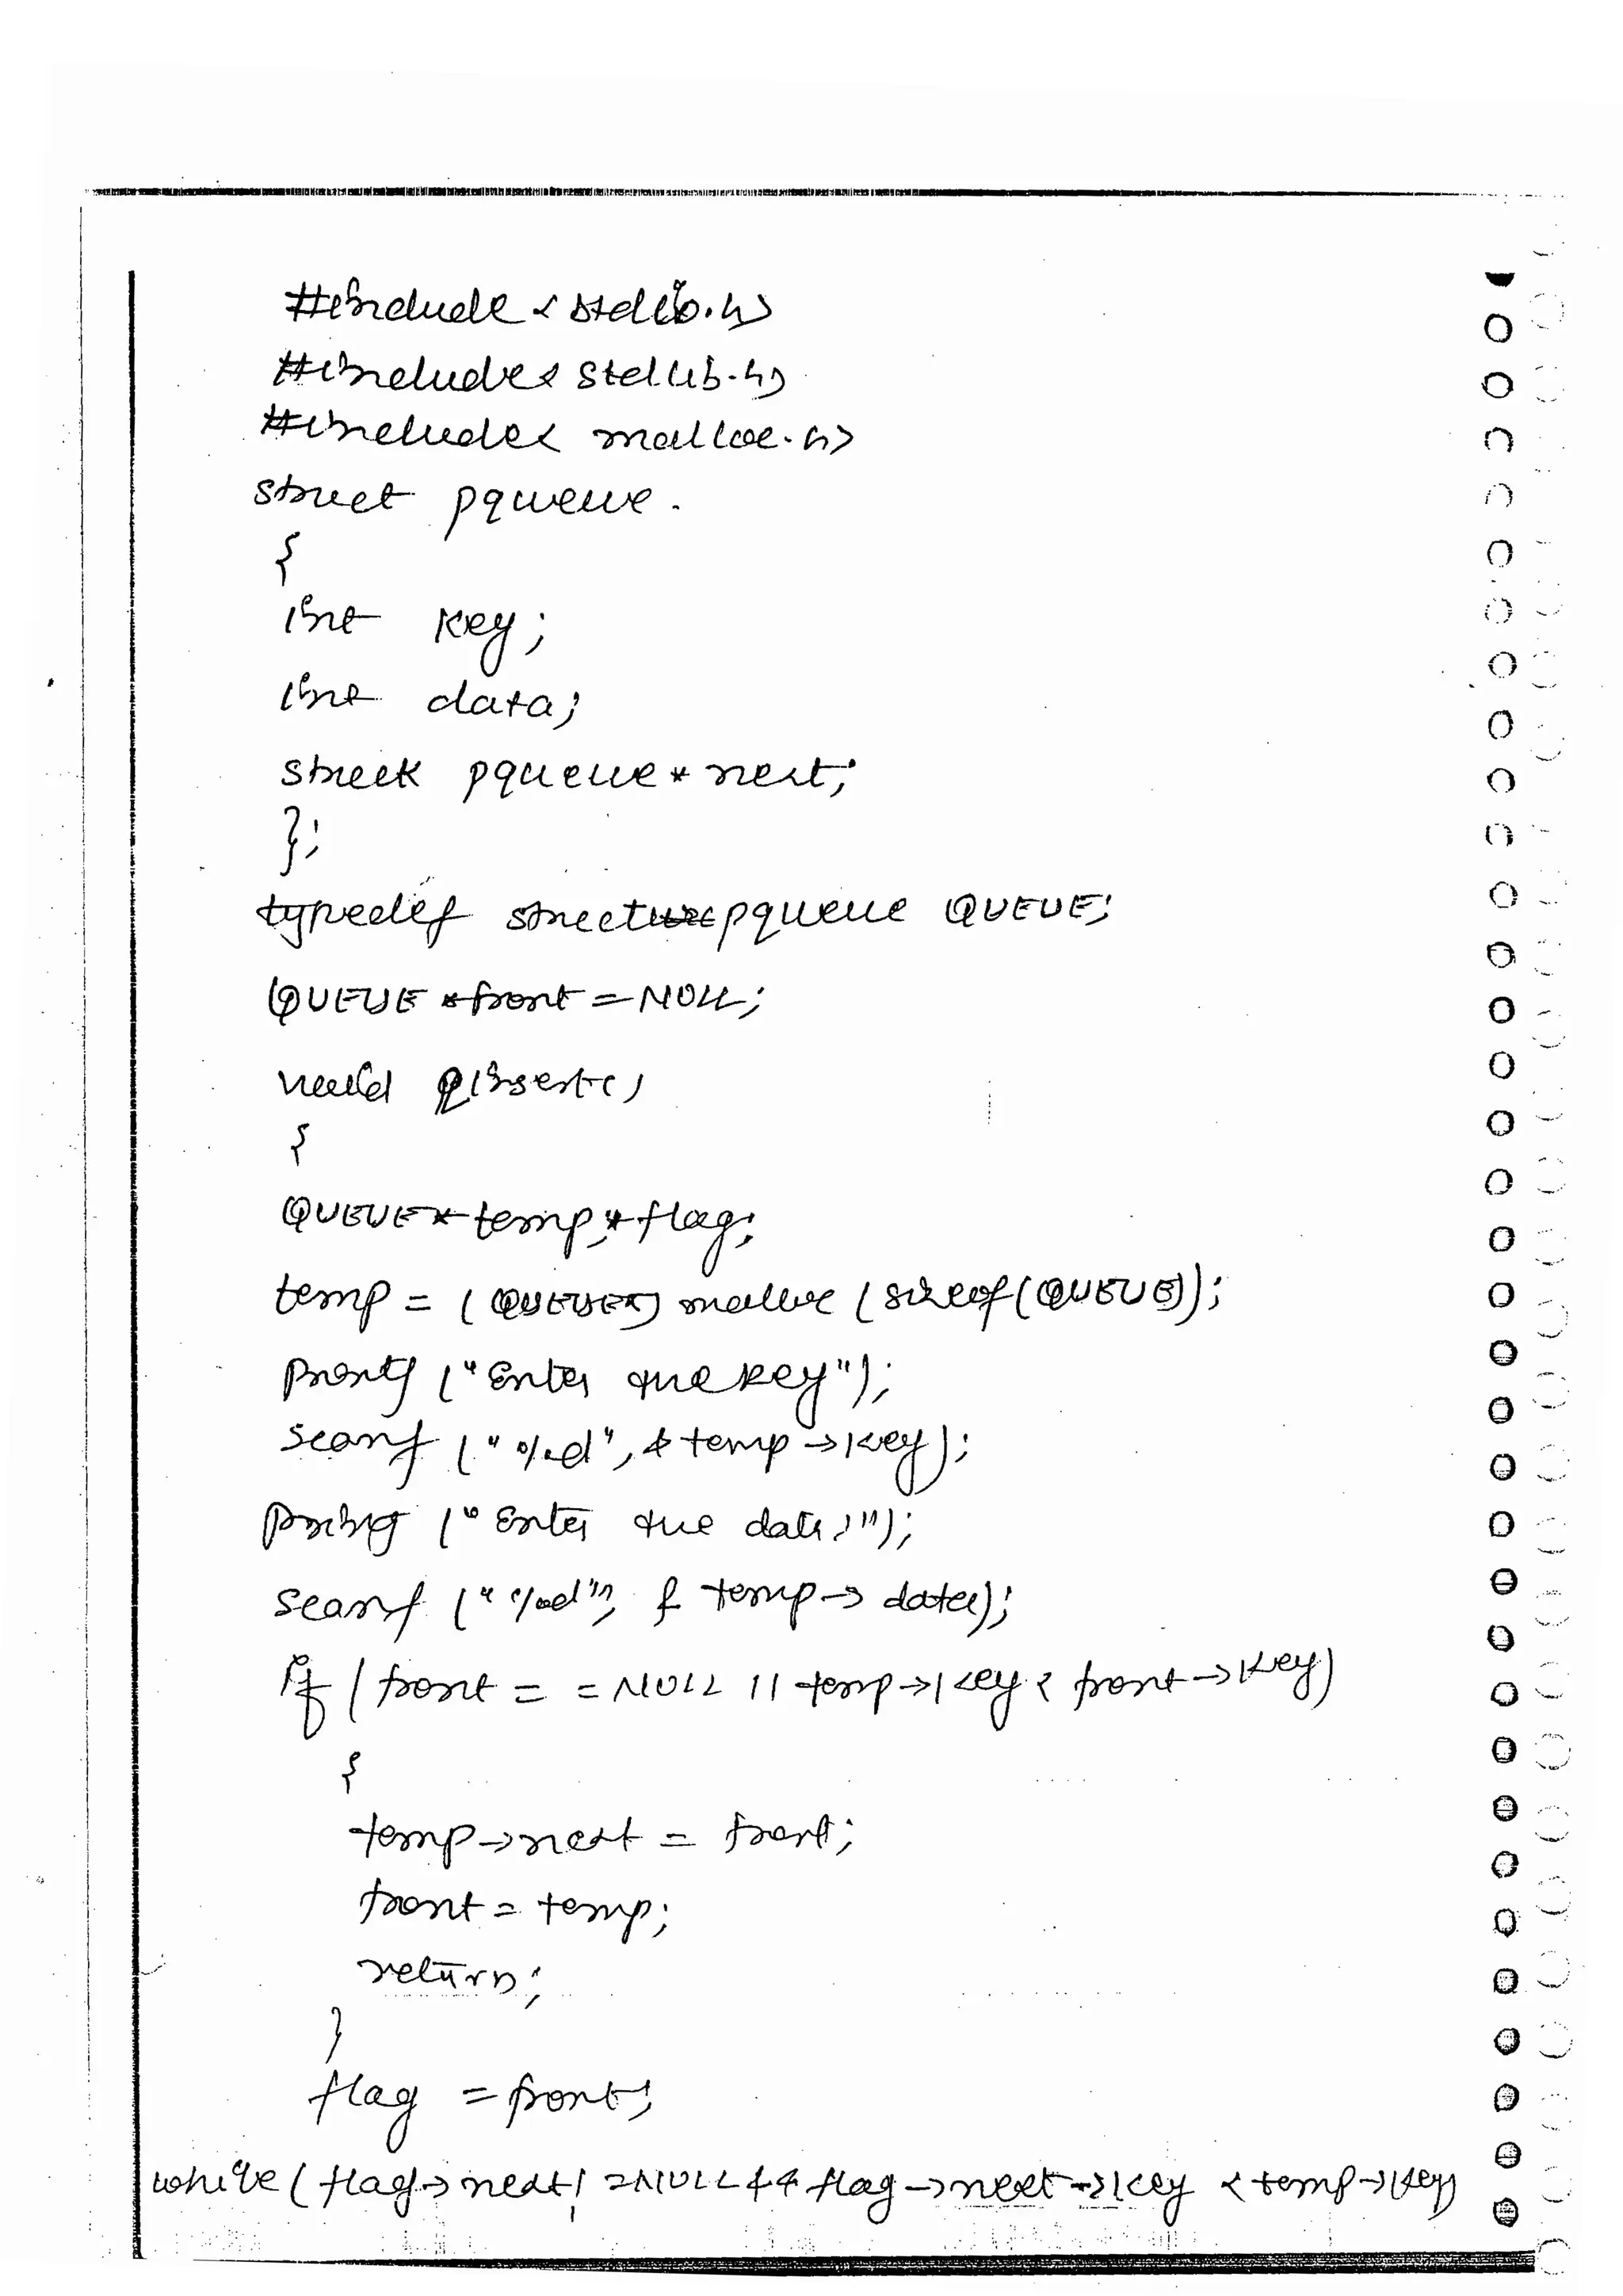 #include <stdio.h>
#include<stdlib.h>
#include< malloc.h>
struct pqueue
{
int key;
int data;
struct pqueue * next;
};
typedef struct pqueue QUEUE;
QUEUE *front = NULL;
void qinsert()
{
QUEUE* temp,*flag;
temp = (QUEUE*) malloc (sizeof(QUEUE));
Printf ("Enter the key");
scanf ("%d", & temp->key);
printf ("Enter the data:");
scanf ("%d", & temp-> data);
if (front = = NULL || temp->key < front->key)
{
temp->next = front;
front = temp;
return;
}
flag = front;
while (flag->next! =NULL && flag->next->key < temp->key)